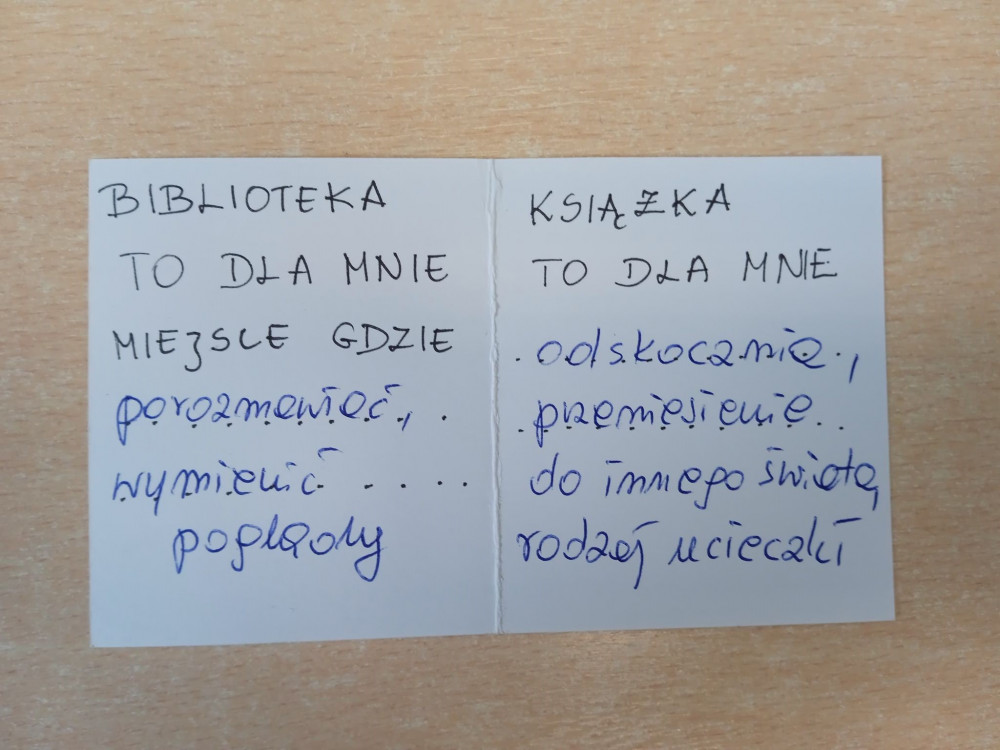 BIBLIOTEKA
TO DLA MNIE
MIEJSCE GDZIE
porozmawiać,
wymienić
poglądy
KSIĄŻKA
TO DLA MNIE
odskocznia,
przeniesienie
do innego świata,
rodzaj ucieczki